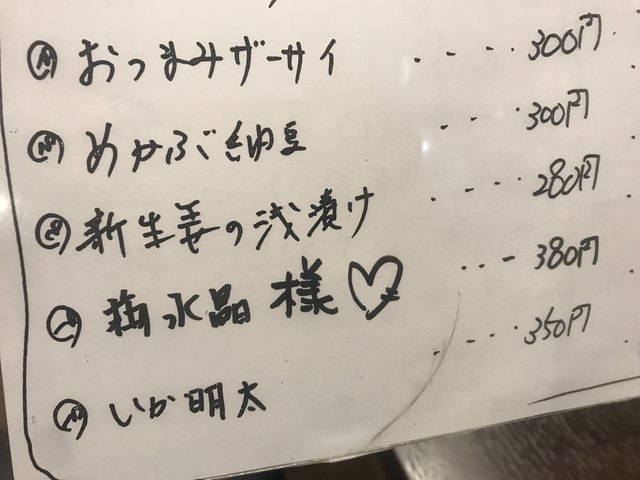 おつまみザーサイ ････ 300円
めかぶ納豆 ････ 300円
新生姜の浅漬け ････ 280円
梅水晶 様♡ ････ 380円
いか明太 ････ 350円